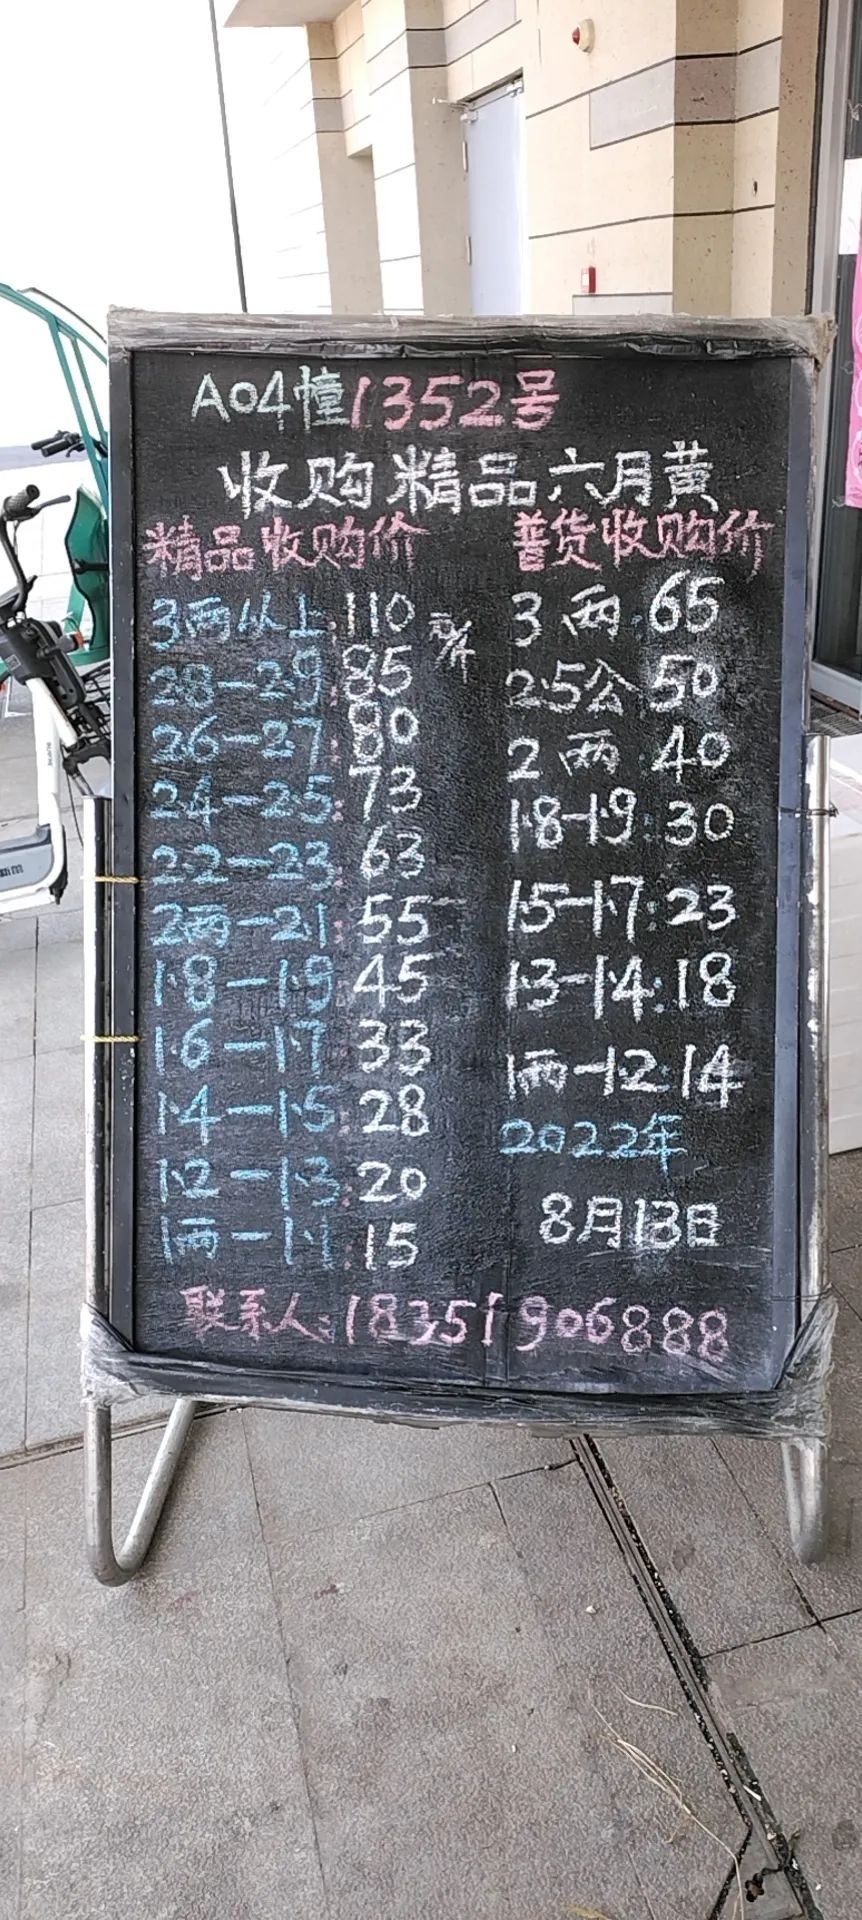 A04幢1352号
收购精品六月黄
精品收购价
3两以上:110元/斤
2.8-2.9:85
2.6-2.7:80
2.4-2.5:73
2.2-2.3:63
2两-2.1:55
1.8-1.9:45
1.6-1.7:33
1.4-1.5:28
1.2-1.3:20
1两-1.1:15
普货收购价
3两:65
2.5公 50
2两:40
1.8-1.9:30
1.5-1.7:23
1.3-1.4:18
1两-1.2:14
2022年
8月13日
联系人:18351906888